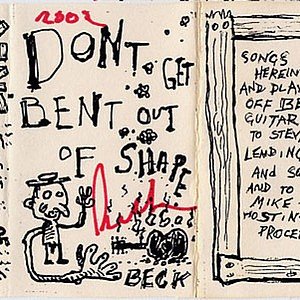 2002
DON'T
GET
BENT OUT
OF SHAPE
BECK
SONGS
HEREIN
AND PLAY
OFF
GUITAR
TO STEV
LENDING
AND SU
AND TO
MIKE
HOSTIN
PROCE